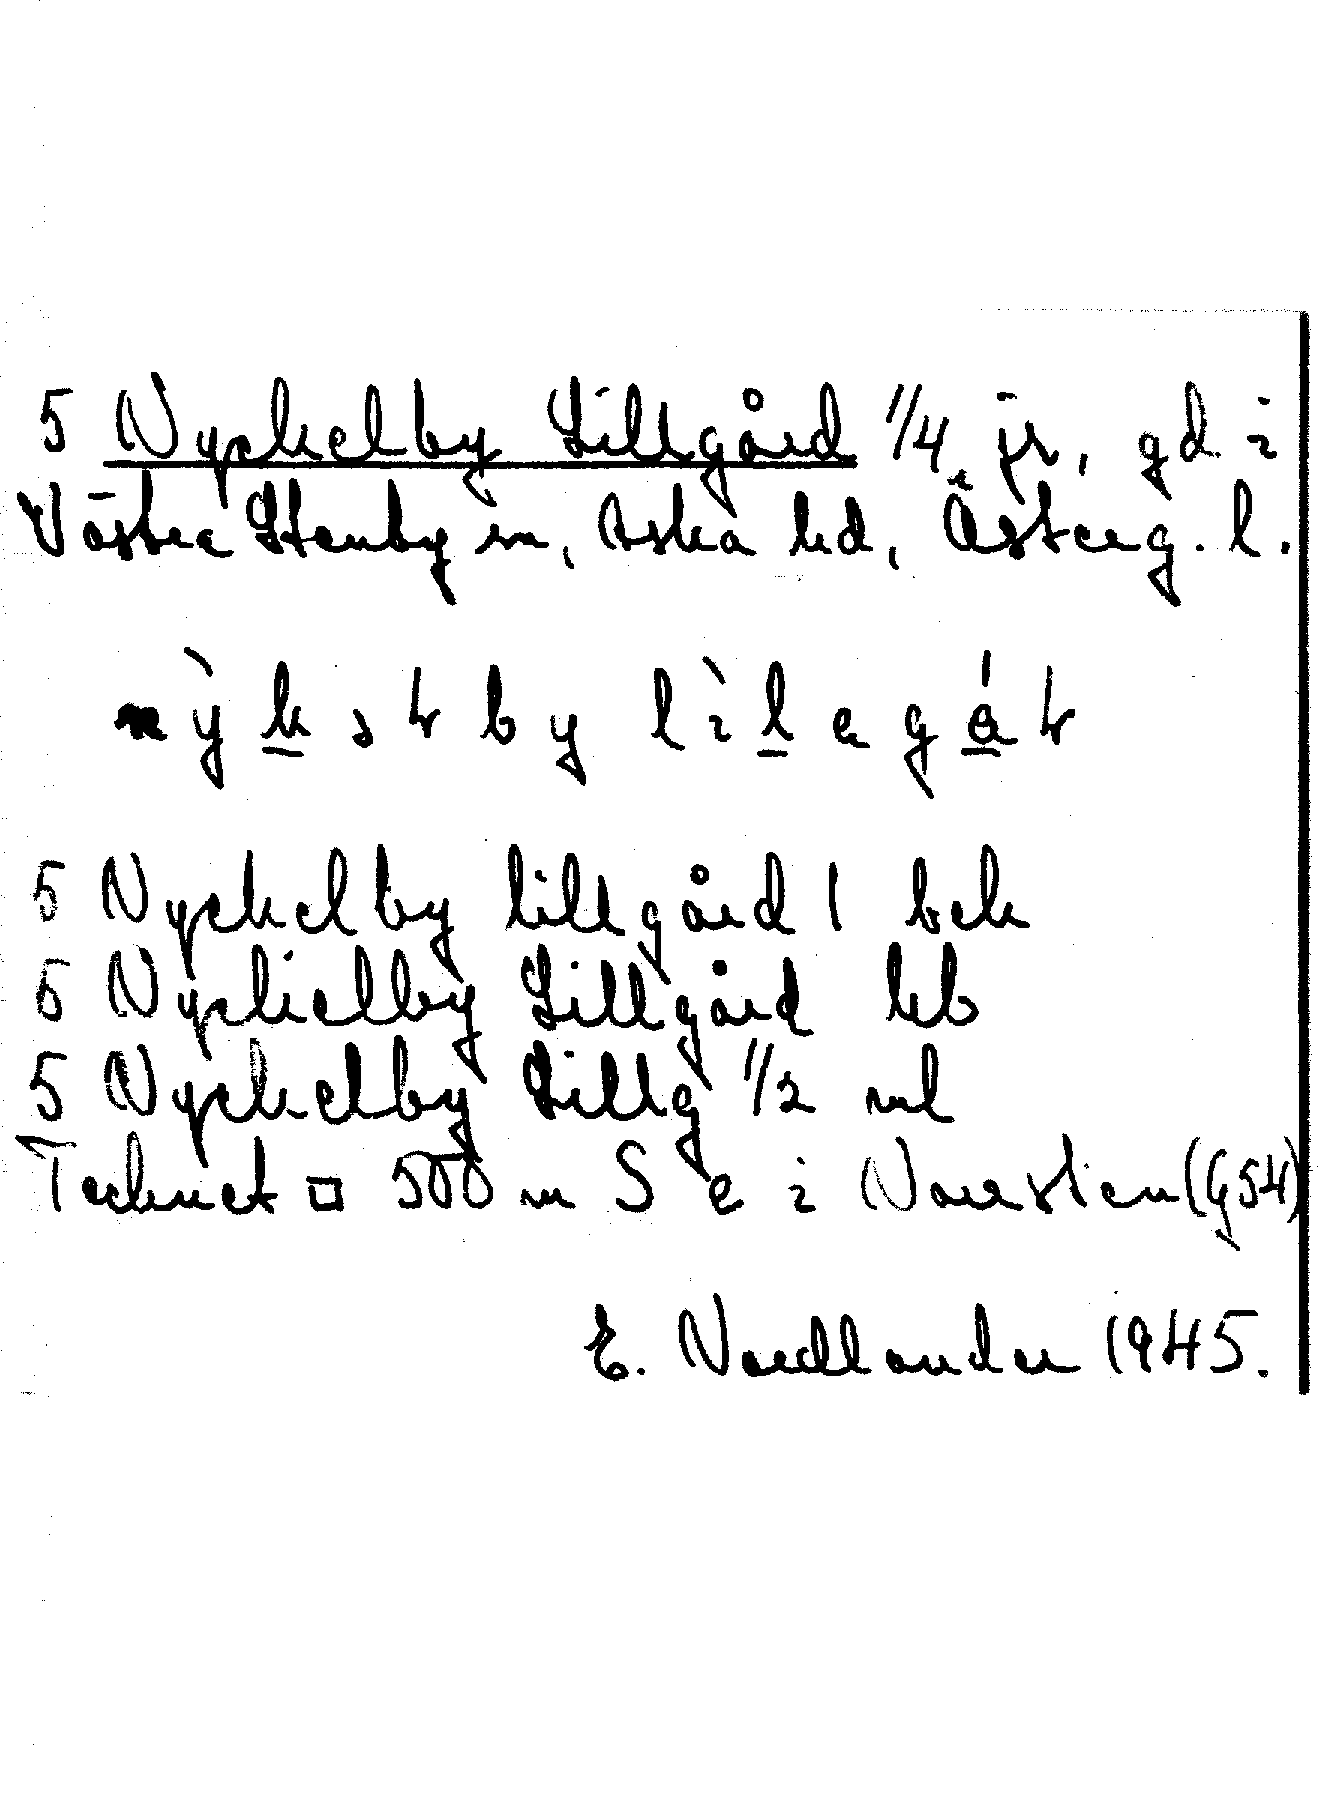 5 Nyckelby Lillgård 1/4 jr, gd i
Västra Stenby sn, Aska hd, Österg. l.
5 Nyckelby lillgård 1 bek
5 Nyckelby Lillgård hb
5 Nyckelby Lillg 1/2 ml
Tecknet □ 500 m S e i Norrsten (G54)
E. Nordlander 1945.